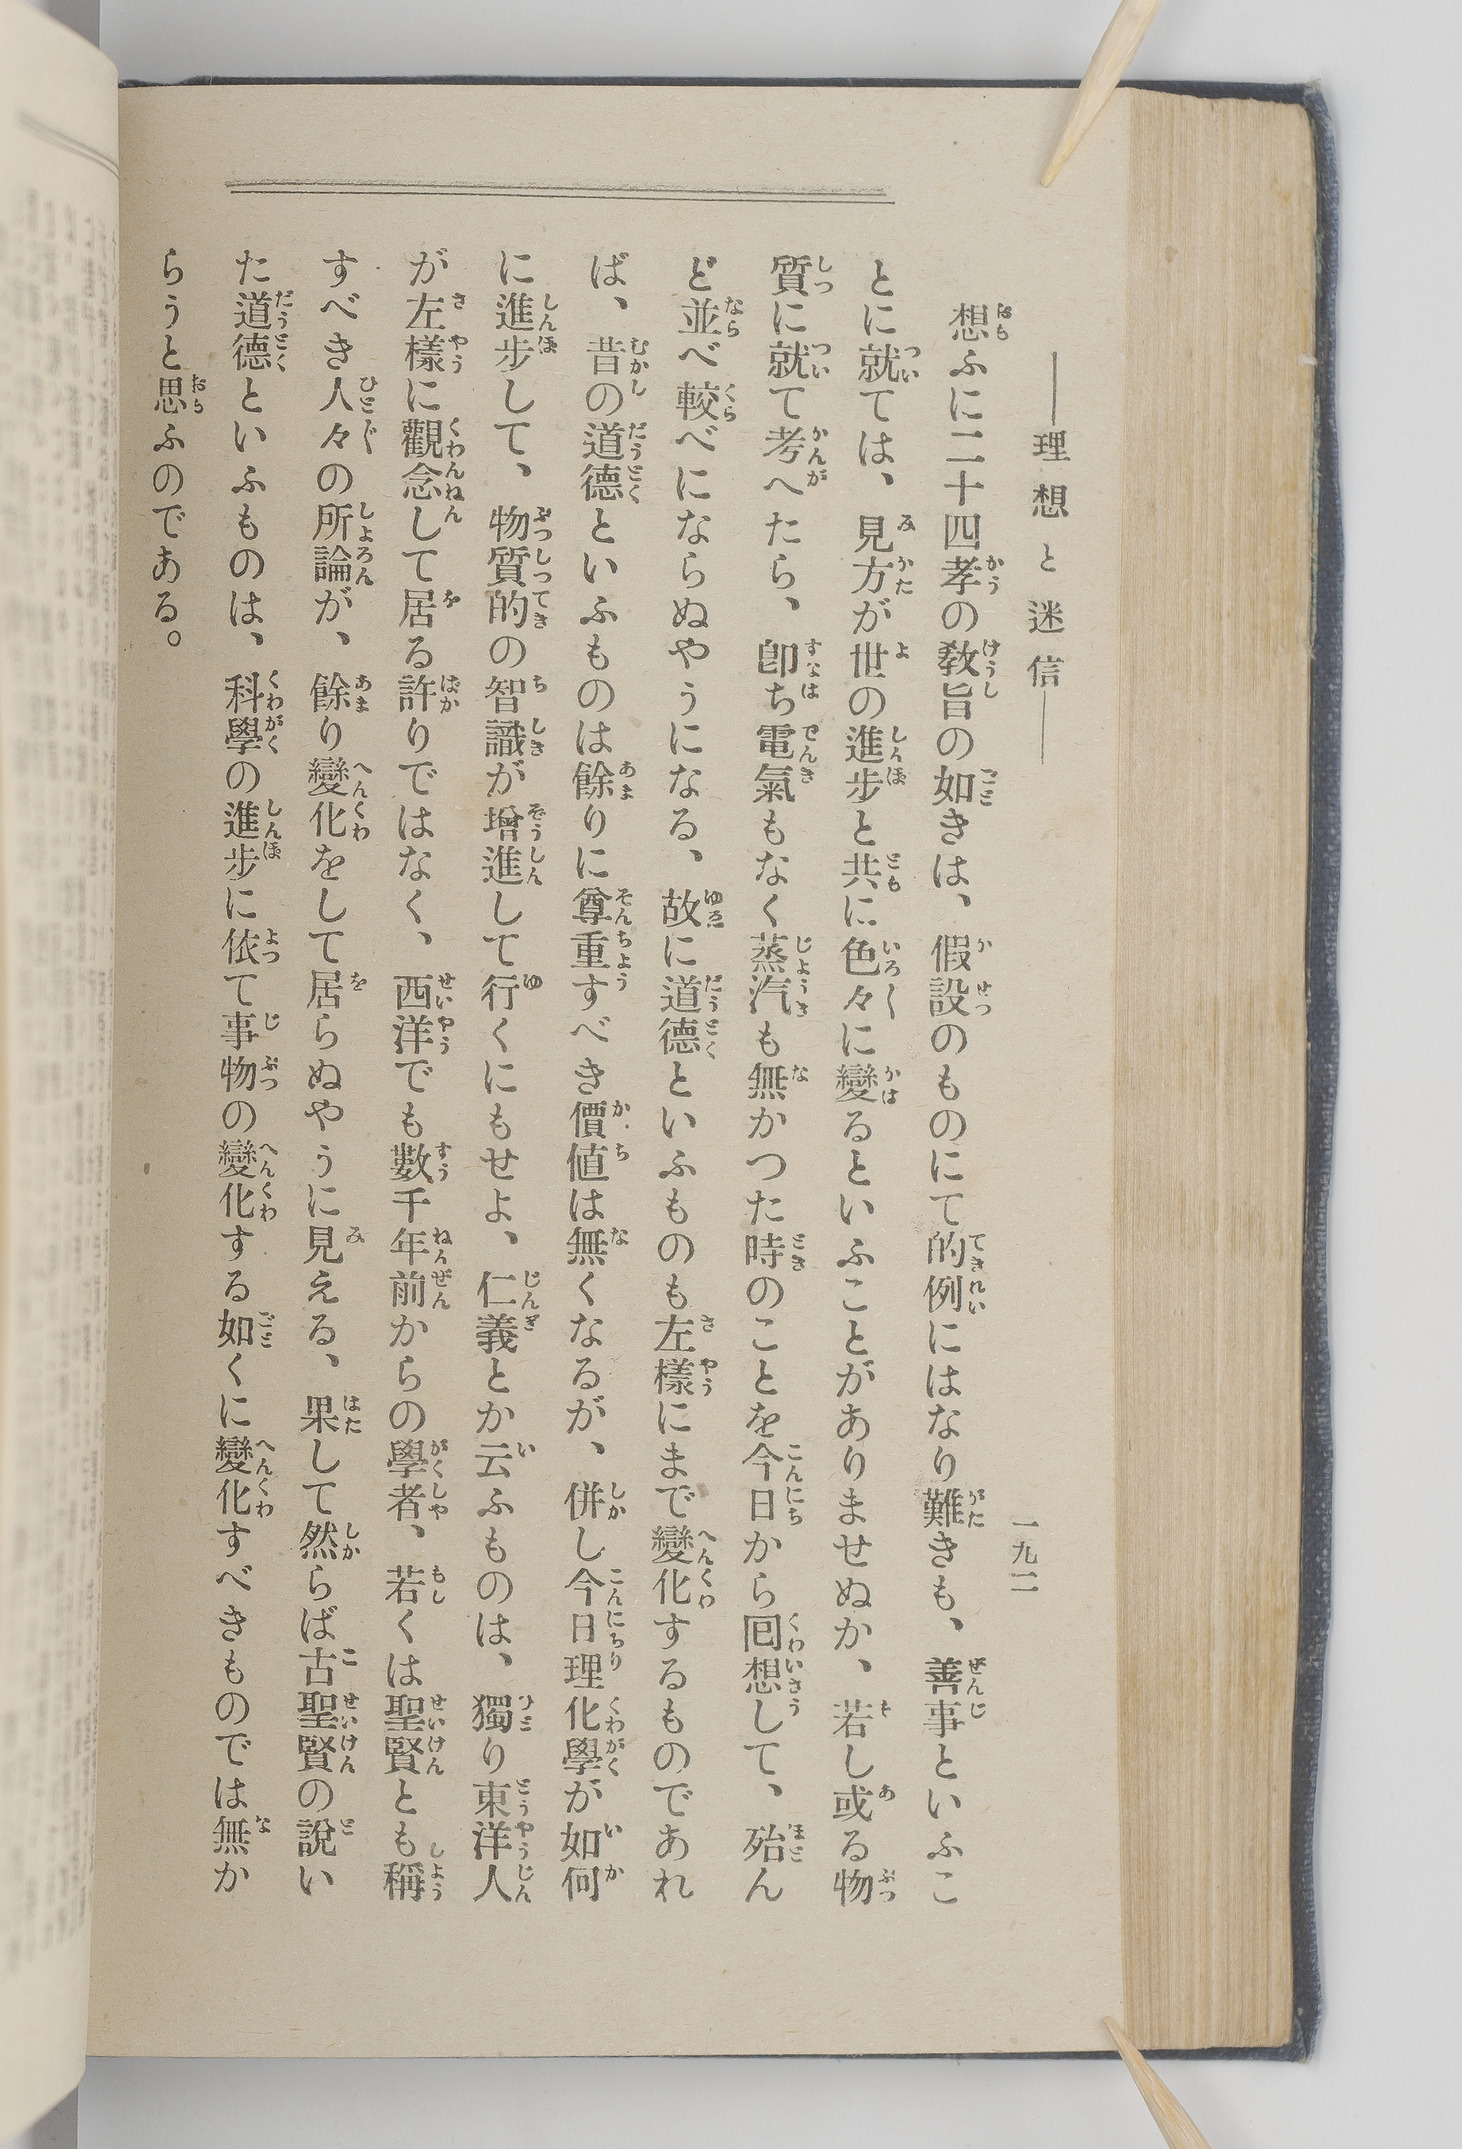 ―理想と迷信―
一九二
想ふに二十四孝の敎旨の如きは、假設のものにて的例にはなり難きも、善事といふこ
とに就ては、見方が世の進步と共に色々に變るといふことがありませぬか、若し或る物
質に就て考へたら、卽ち電氣もなく蒸汽も無かつた時のことを今日から回想して、殆ん
ど並べ較べにならぬやうになる、故に道德といふものも左樣にまで變化するものであれ
ば、昔の道德といふものは餘りに尊重すべき價値は無くなるが、併し今日理化學が如何
に進步して、物質的の智識が增進して行くにもせよ、仁義とか云ふものは、獨り東洋人
が左樣に觀念して居る許りではなく、西洋でも數千年前からの學者、若くは聖賢とも稱
すべき人々の所論が、餘り變化をして居らぬやうに見える、果して然らば古聖賢の說い
た道德といふものは、科學の進步に依て事物の變化する如くに變化すべきものでは無か
らうと思ふのである。